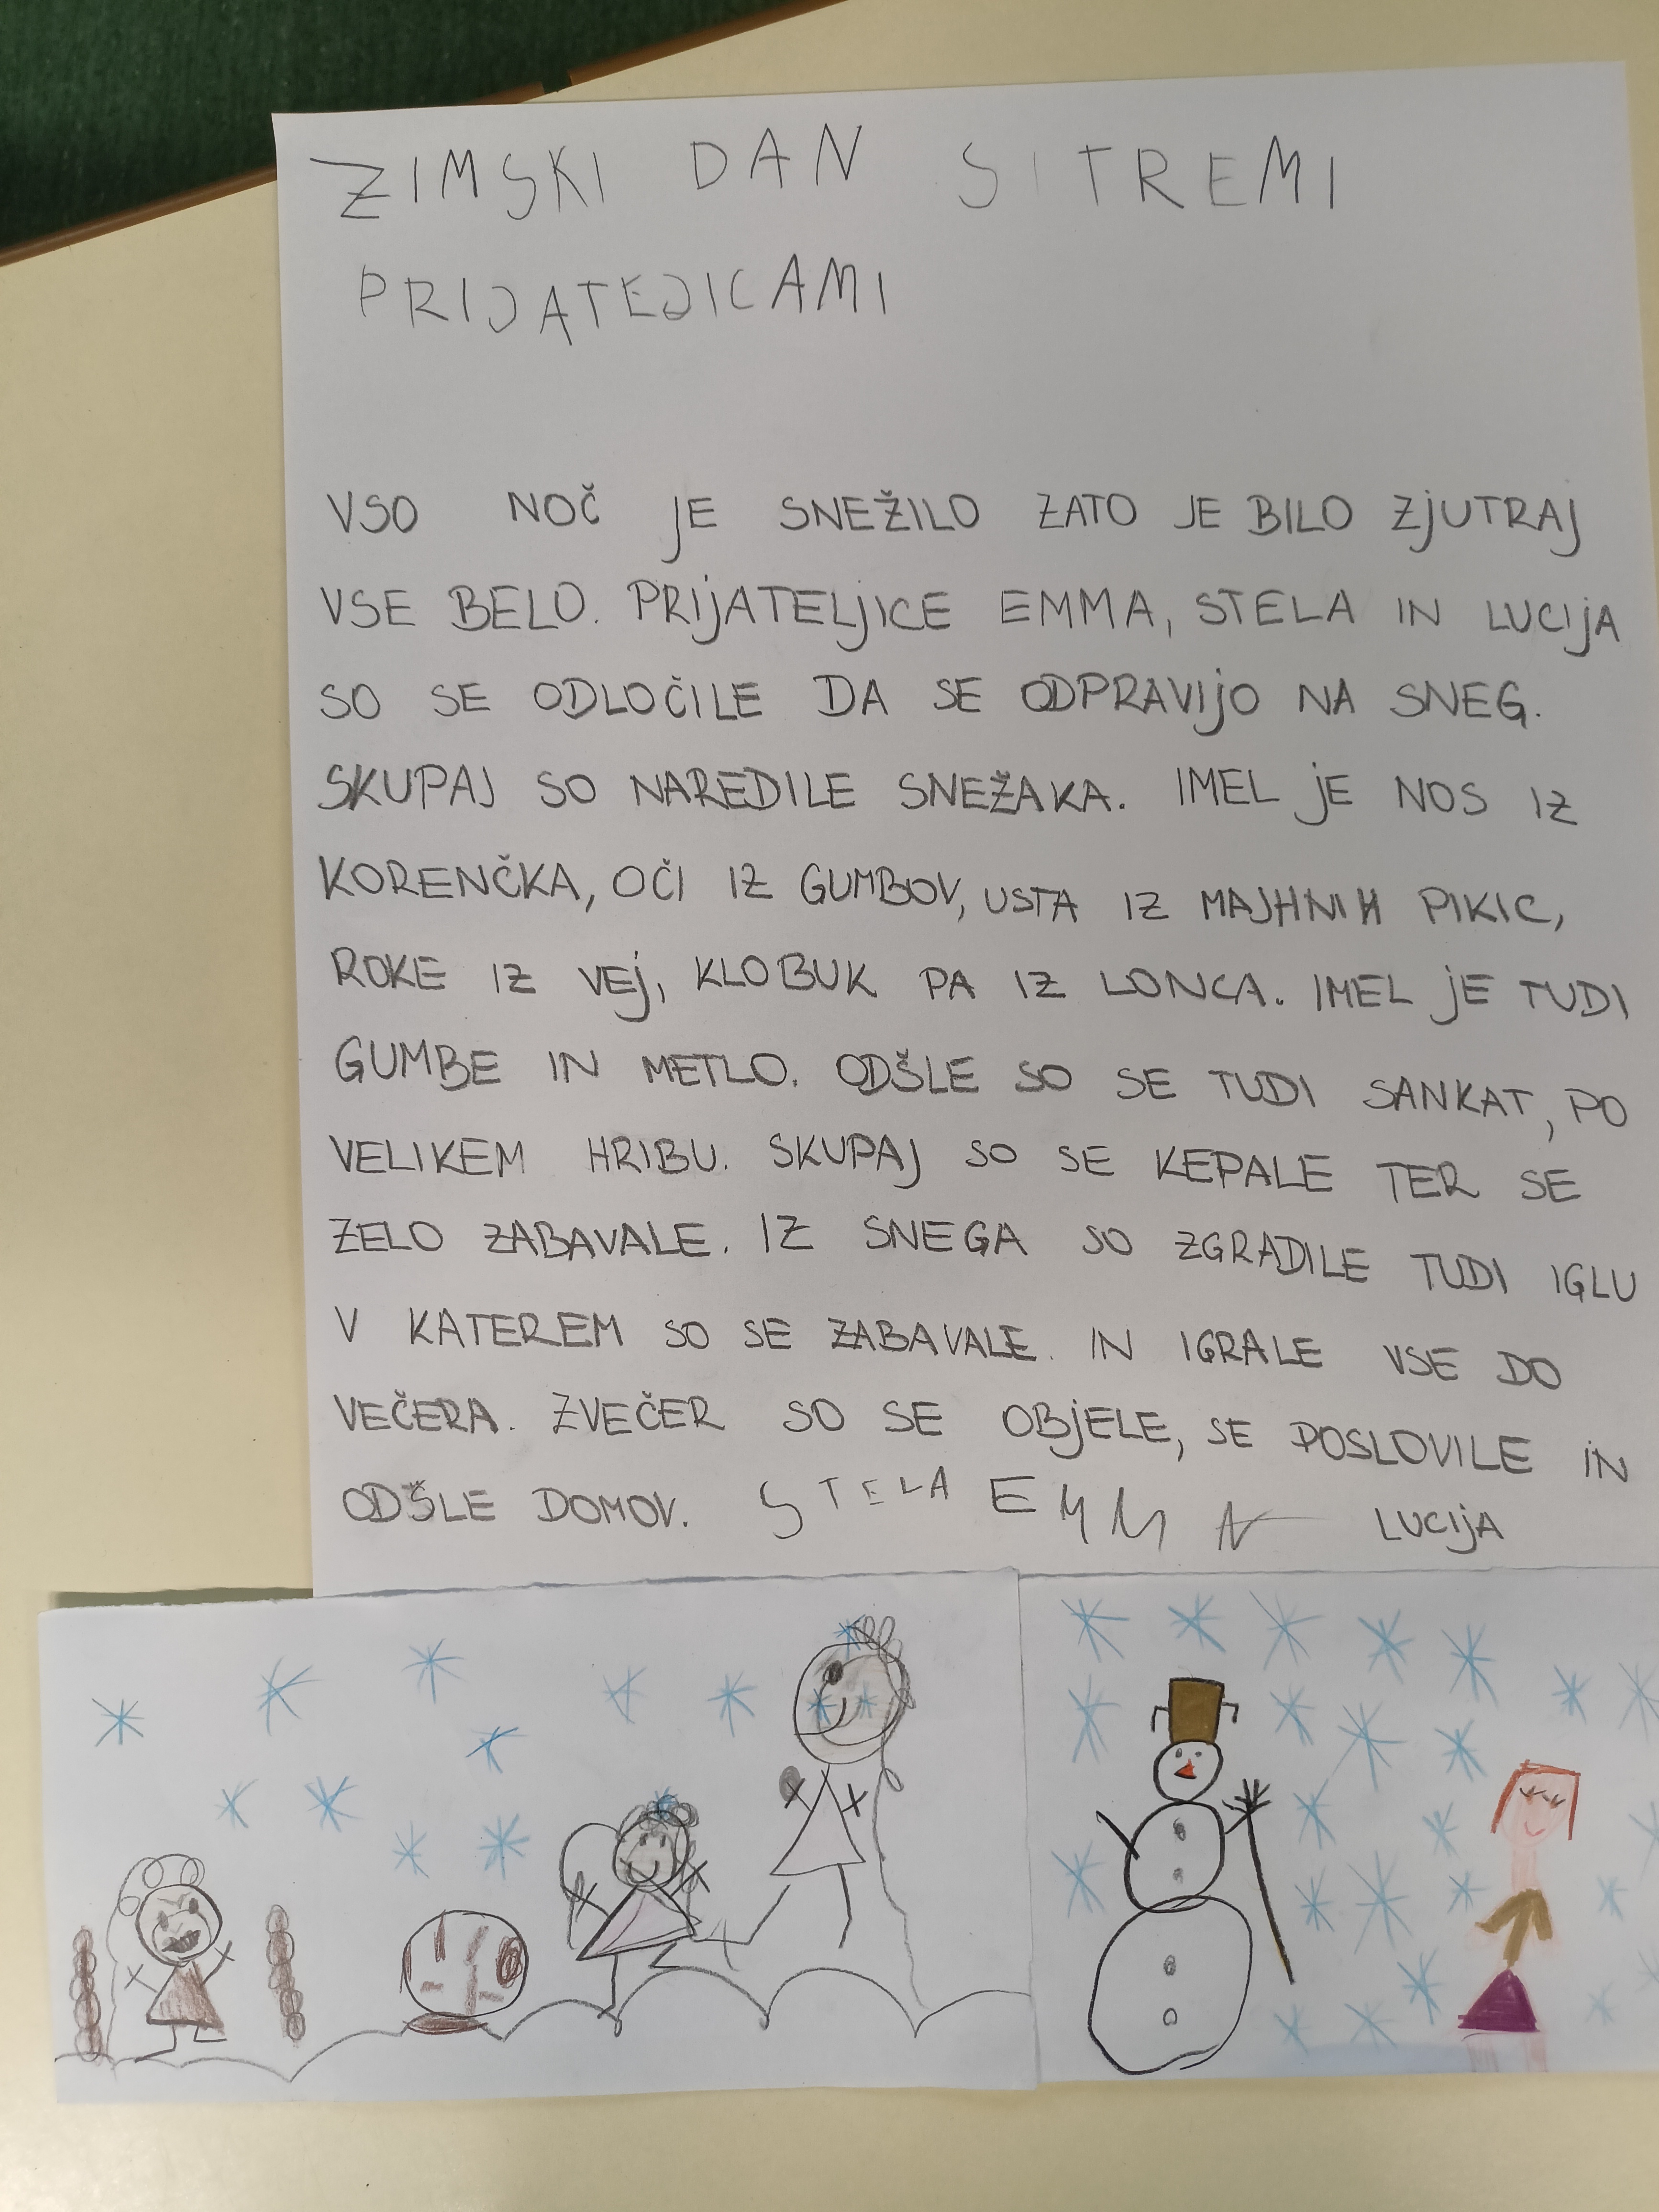 ZIMSKI DAN S TREMI
PRIJATEJICAMI
VSO NOČ JE SNEŽILO ZATO JE BILO ZJUTRAJ
VSE BELO. PRIJATELJICE EMMA, STELA IN LUCIJA
SO SE ODLOČILE DA SE ODPRAVIJO NA SNEG.
SKUPAJ SO NAREDILE SNEŽAKA. IMEL JE NOS IZ
KORENČKA, OČI IZ GUMBOV, USTA IZ MAJHNIH PIKIC,
ROKE IZ VEJ, KLOBUK PA IZ LONCA. IMEL JE TUDI
GUMBE IN METLO. ODŠLE SO SE TUDI SANKAT, PO
VELIKEM HRIBU. SKUPAJ SO SE KEPALE TER SE
ZELO ZABAVALE. IZ SNEGA SO ZGRADILE TUDI IGLU
V KATEREM SO SE ZABAVALE. IN IGRALE VSE DO
VEČERA. ZVEČER SO SE OBJELE, SE POSLOVILE IN
ODŠLE DOMOV. STELA EMMA LUCIJA